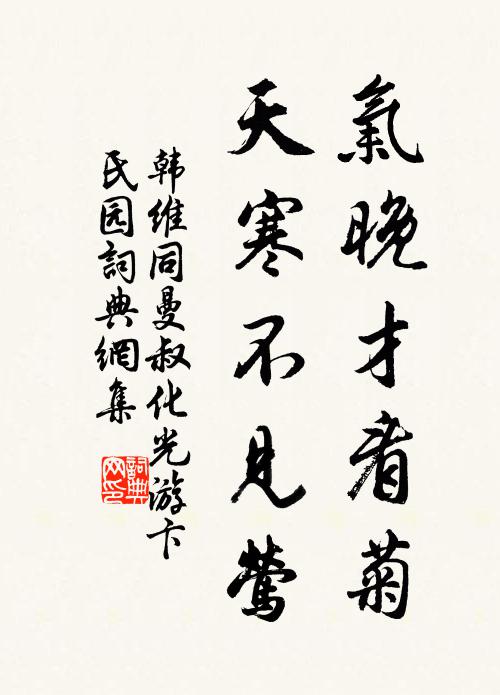 氣晚才看菊
天寒不見鶯
韩維同曼叔化光游卞
氏园詞典網集
詞典
网印